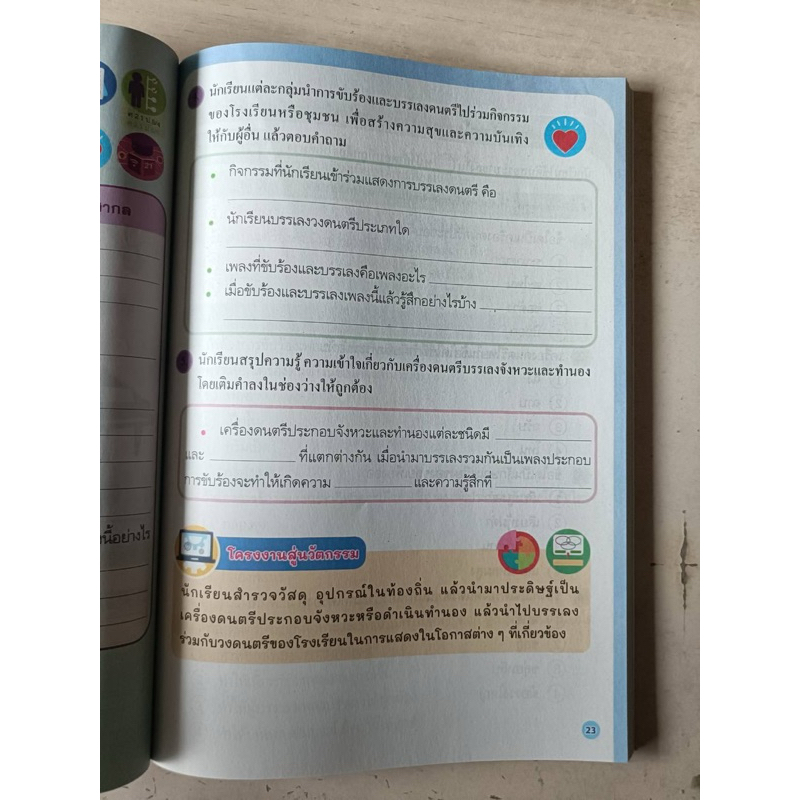 สากล
นี้อย่างไร
นักเรียนแต่ละกลุ่มนำการขับร้องและบรรเลงดนตรีไปร่วมกิจกรรม
ของโรงเรียนหรือชุมชน เพื่อสร้างความสุขและความบันเทิง
ให้กับผู้อื่น แล้วตอบคำถาม
• กิจกรรมที่นักเรียนเข้าร่วมแสดงการบรรเลงดนตรี คือ
• นักเรียนบรรเลงวงดนตรีประเภทใด
• เพลงที่ขับร้องและบรรเลงคือเพลงอะไร
• เมื่อขับร้องและบรรเลงเพลงนี้แล้วรู้สึกอย่างไรบ้าง
นักเรียนสรุปความรู้ ความเข้าใจเกี่ยวกับเครื่องดนตรีบรรเลงจังหวะและทำนอง
โดยเติมคำลงในช่องว่างให้ถูกต้อง
• เครื่องดนตรีประกอบจังหวะและทำนองแต่ละชนิดมี
และ ที่แตกต่างกัน เมื่อนำมาบรรเลงรวมกันเป็นเพลงประกอบ
การขับร้องจะทำให้เกิดความ และความรู้สึกที่
โครงงานสู่นวัตกรรม
นักเรียนสำรวจวัสดุ อุปกรณ์ในท้องถิ่น แล้วนำมาประดิษฐ์เป็น
เครื่องดนตรีประกอบจังหวะหรือดำเนินทำนอง แล้วนำไปบรรเลง
ร่วมกับวงดนตรีของโรงเรียนในการแสดงในโอกาสต่าง ๆ ที่เกี่ยวข้อง
23